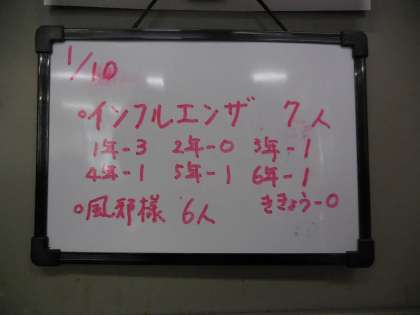 1/10
○インフルエンザ 7人
1年-3 2年-0 3年-1
4年-1 5年-1 6年-1
○風邪様 6人 ききょう-0